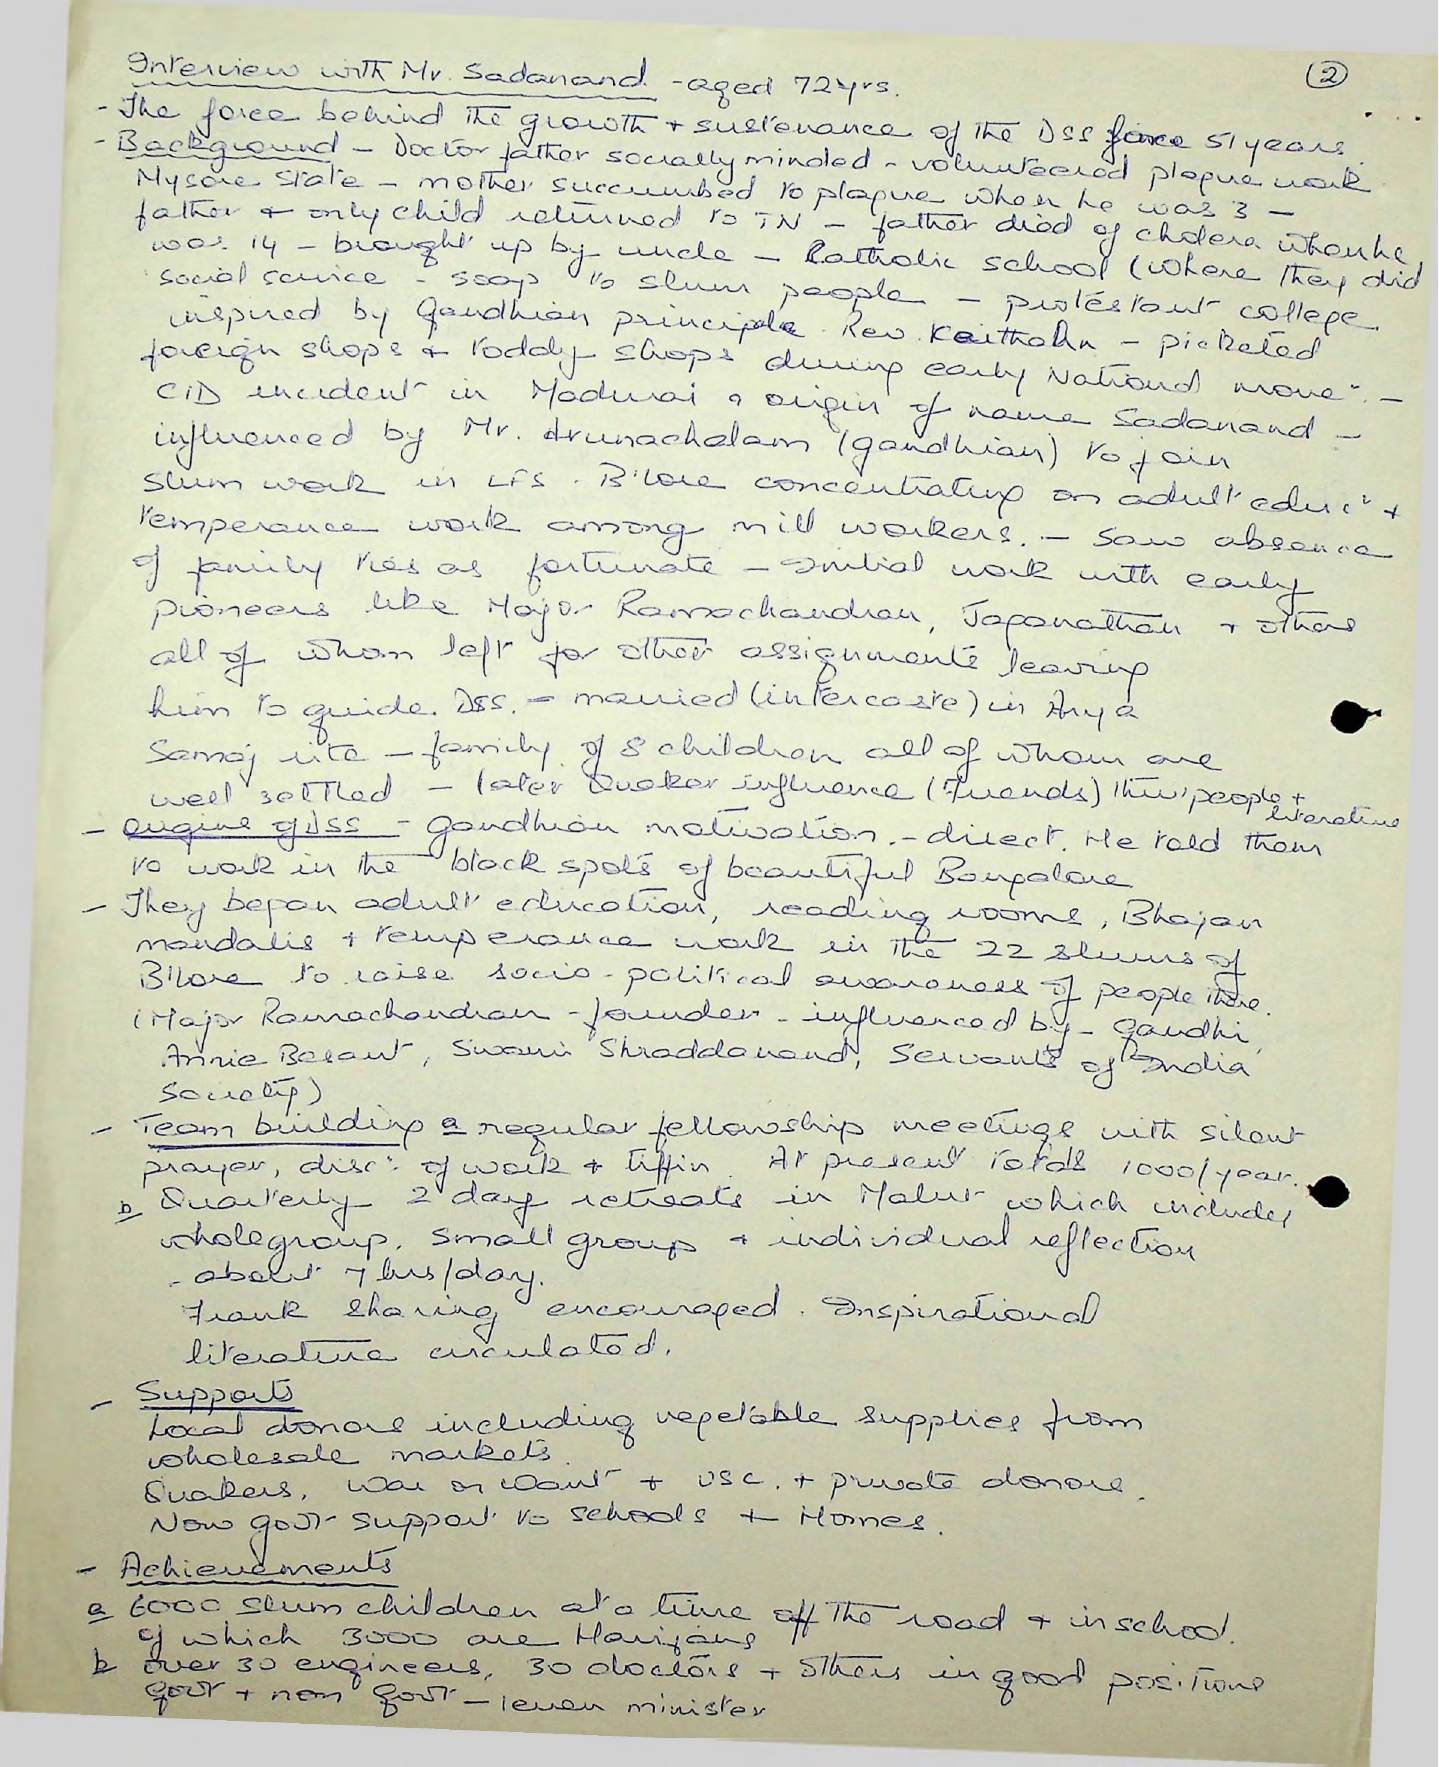 (2)
Interview with Mr. Sadanand - aged 72 yrs.
- The force behind the growth + sustenance of the DSS force 51 years.
- Background - Doctor father socially minded - volunteered plague work
Mysore State - mother succumbed to plague when he was 3 -
father + only child returned to TN - father died of cholera when he
was 14 - brought up by uncle - Catholic school (where they did
social service - soap to slum people - protestant college
inspired by Gandhian principle Rev. Keithahn - picketed
foreign shops + toddy shops during early National move:. -
CID incident in Madurai & origin of name Sadanand -
influenced by Mr. Arunachalam (gandhian) to join
slum work in LFS. B'lore concentrating on adult educ: +
temperance work among mill workers. - Saw absence
of family ties as fortunate - Initial work with early
pioneers like Major Ramachandran, Jaganathan + others
all of whom left for other assignments leaving
him to guide DSS. - married (intercaste) in Arya
Samaj rite - family of 8 children all of whom are
well settled - later Quaker influence (Friends) thru' people +
literature
- origins of DSS - Gandhian motivation - direct. He told them
to work in the black spots of beautiful Bangalore
- They began adult education, reading rooms, Bhajan
mandalis + temperance work in the 22 slums of
B'lore to raise socio-political awareness of people there.
(Major Ramachandran - founder - influenced by - Gandhi,
Annie Besant, Swami Shraddanand, Servants of India
Society)
- Team building a regular fellowship meetings with silent
prayer, disc: of work + tiffin. At present totals 1000/year.
b Quarterly 2 day retreats in Malur which includes
whole group, small group + individual reflection
- about 7 hrs/day.
Frank sharing encouraged. Inspirational
literature circulated.
- Supports
Local donors including vegetable supplies from
wholesale markets.
Quakers, War on Want + USC. + private donors.
Now govt support to schools + Homes.
- Achievements
a 6000 slum children at a time off the road + in school.
of which 3000 are Harijans
b over 30 engineers, 30 doctors + others in good positions
govt + non govt - 1 even minister